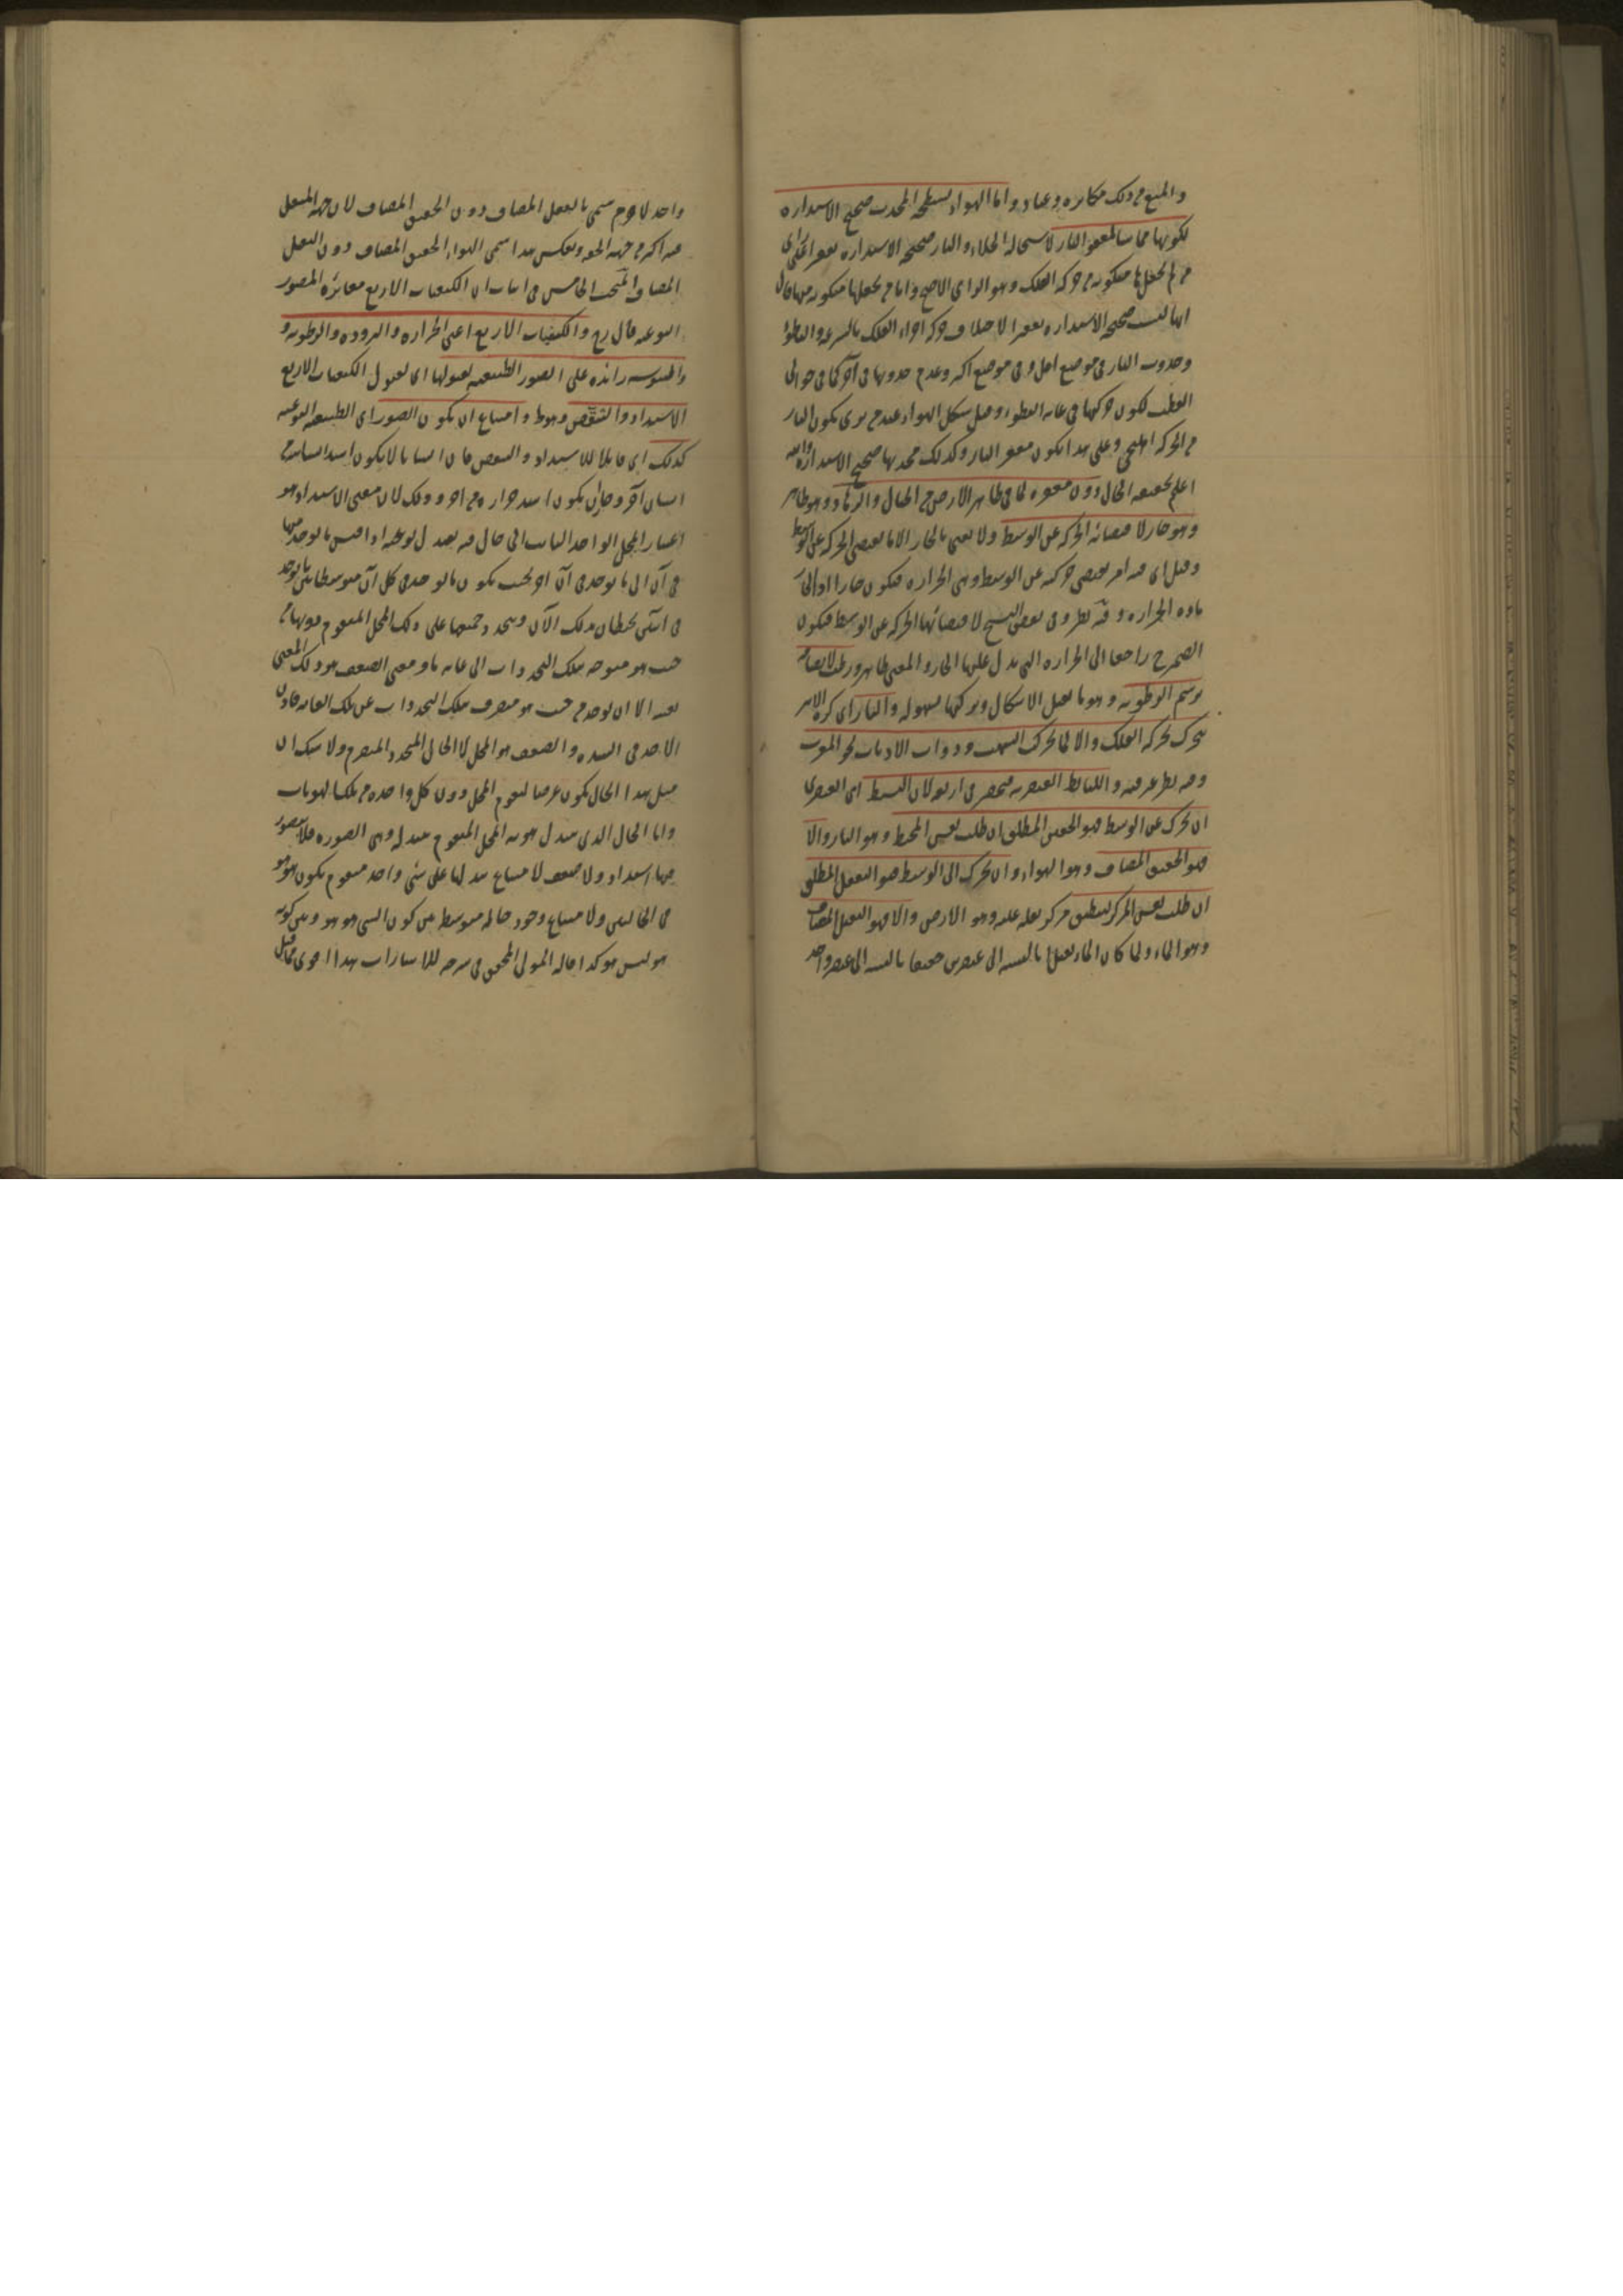 والمنع من ذلك مكابرة وعناد واما الهواء فسطحه المحدب صحيح الاستدارة
لكونها مماسا لمقعر النار لاستحالة الخلاء والنار صحيحة الاستدارة مقعرا على راى
من لم يجعلها متكونة من حركة الفلك وهو الراى الاصح واما من يجعلها متكونة منها فقال
انها ليست صحيحة الاستدارة مقعرا لاختلاف حركة اجزاء الفلك بالسرعة والبطؤ
وحدوث النار فى موضع اقل وفى موضع اكثر وعدم حدوثها فى آخر كما فى حوالى
القطب لكون حركتها فى غاية البطؤ وقيل شكل الهواء عند من يرى تكون النار
من الحركة اهليجى وعلى هذا يكون مقعر النار وكذلك محدبها صحيح الاستدارة والله
اعلم بحقيقة الحال دون مقعره لما فى ظاهر الارض من الجبال والوهاد وهو ظاهر
وهو حار لاقتضائه الحركة عن الوسط ولا نعنى بالحار الا ما يقتضى الحركة عن الوسط
وقيل اى فيه امر يقتضى حركته عن الوسط وهى الحرارة فيكون حارا اذ الحار
ماده الحرارة وفيه نظر وفى بعض النسخ لاقتضائها الحركة عن الوسط فيكون
الضمير راجعا الى الحرارة التى يدل عليها الحار والمعنى ظاهر ورطب لانصافه
برسم الرطوبة وهو ما يقبل الاشكال ويتركها بسهولة والنار اى كرة الاثير
تتحرك بحركة الفلك والا لما تحرك الشهب وذوات الاذناب نحو المغرب
وفيه نظر عرفته والبسايط العنصرية منحصرة فى اربعة لان البسيط اى العنصرى
ان تحرك عن الوسط فهو الخفيف المطلق ان طلب نفس المحيط وهو النار والا
فهو الخفيف المضاف وهو الهواء وان تحرك الى الوسط فهو الثقيل المطلق
ان طلب نفس المركز لينطبق مركز ثقله عليه وهو الارض والا فهو الثقيل المضاف
وهو الماء ولما كان الماء ثقيلا بالنسبة الى عنصرين خفيفا بالنسبة الى عنصر واحد
واحد لا جرم سمى بالثقيل المضاف دون الخفيف المضاف لان جهة الثقل
فيه اكثر من جهة الخفة وبعكس هذا سمى الهواء الخفيف المضاف دون الثقيل
المضاف المبحث الخامس فى اثبات ان الكيفيات الاربع مغايرة للصور
النوعية قال رح والكيفيات الاربع اعنى الحرارة والبرودة والرطوبة و
واليبوسة زائدة على الصور الطبيعية لقبولها اى لقبول الكيفيات الاربع
الاشتداد والتنقص وهوط وامتناع ان يكون الصور اى الطبيعة النوعية
كذلك اى قابلا للاشتداد والتنقص فان انسانا لا يكون اشد انسانية من
انسان آخر وجاز ان يكون اشد حرارة من آخر وذلك لان معنى الاشتداد هو
اعتبار المحل الواحد الثابت الى حال فيه يتبدل نوعيته اذا قيس ما يوجد منها
فى آن الى ما يوجد فى آن آخر بحيث يكون ما يوجد فى كل آن متوسطا بين ما يوجد
فى آنين يحيطان بذلك الآن ويتجدد جميعها على ذلك المحل المتقوم دونها من
حيث هو متوجه بتلك التجددات الى غاية ما ومعنى الضعف هو ذلك المعنى
بعينه الا ان يوجد من حيث هو منصرف بتلك التجددات عن تلك الغاية فاذن
الاخذ فى الشدة والضعف هو المحل لا الحال المتجدد المتصرم ولا شك ان
مثل هذا الحال يكون عرضا لتقوم المحل دون كل واحدة من تلك الهويات
واما الحال الذى تتبدل هوية المحل المتقوم بتبدله وهى الصورة فلا يتصور
فيها اشتداد ولا ضعف لامتناع تبدلها على شئ واحد متقوم يكون هو هو
فى الحالتين ولامتناع وجود حالة متوسطة بين كون الشئ هو هو وبين كونه
هو ليس هو كذا قاله المولى المحقق فى شرحه للاشارات هذا اقوى مما قيل